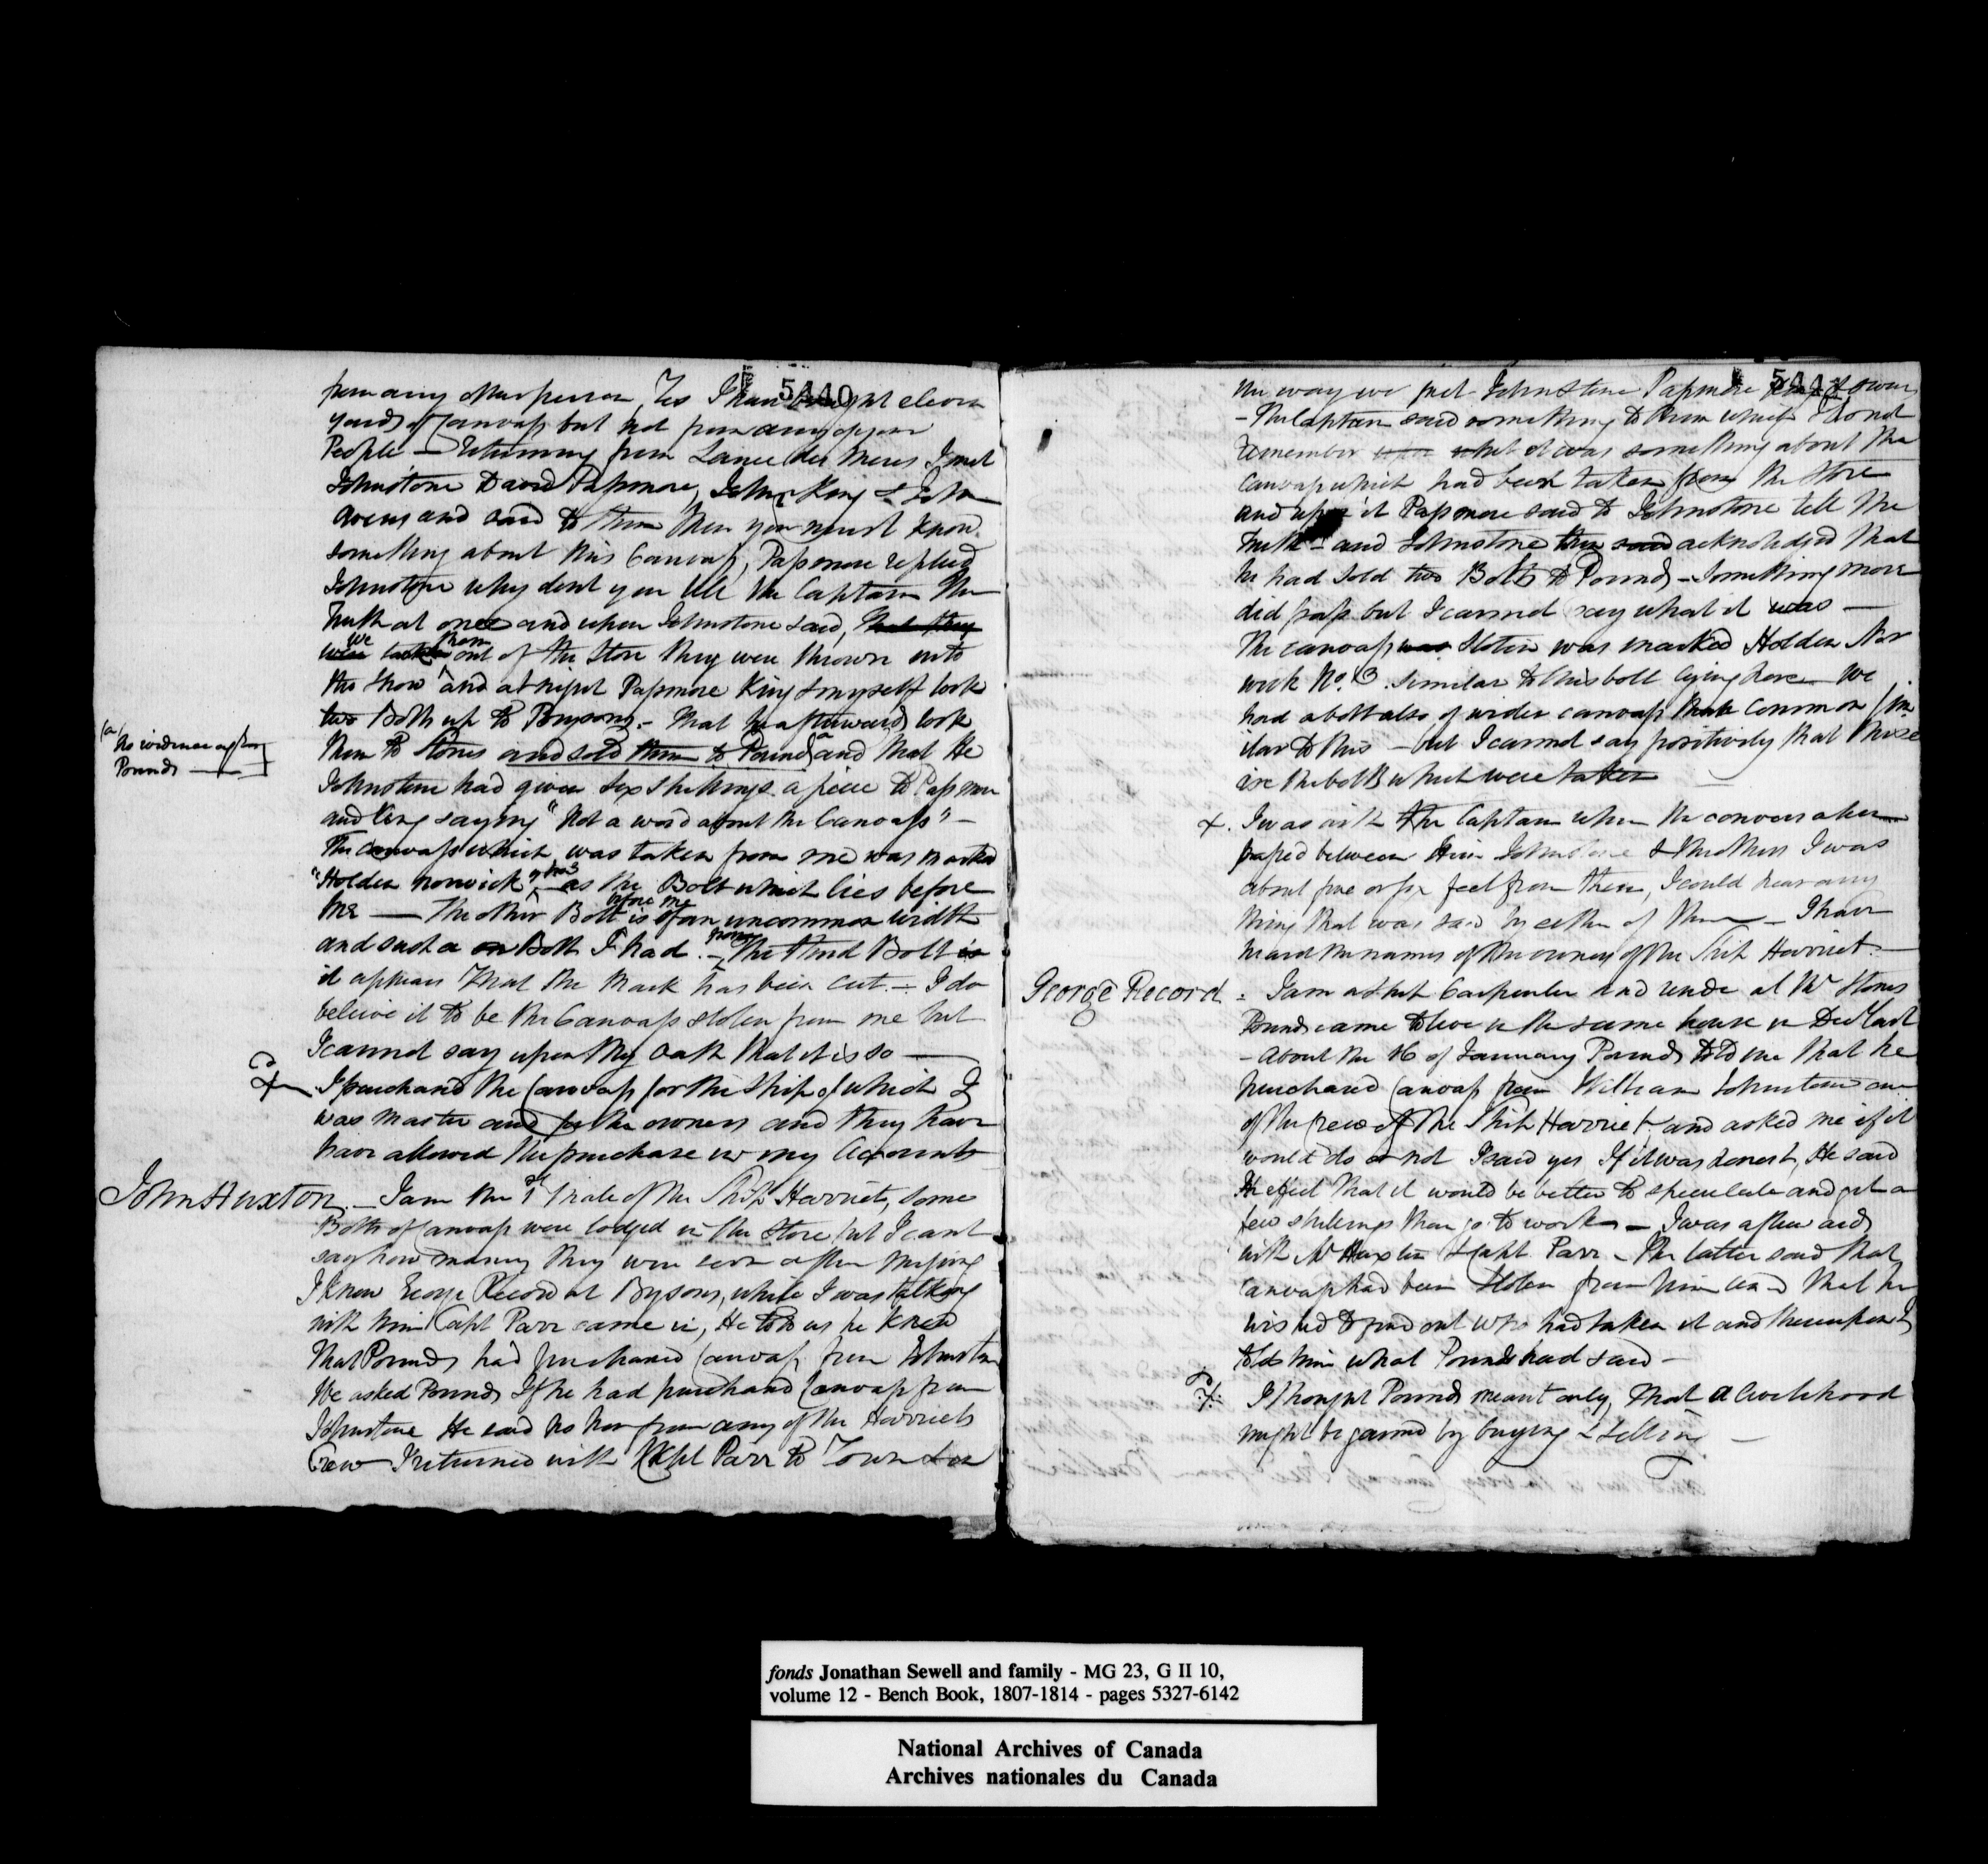 5440
from any other person, Yes I have bought eleven
yards of Canvass but not from any of your
People — Returning from Lance des Meres I met
Johnstone David Passmore, John King & John
Owens and said to them then you must know
something about this Canvass, Passmore replied
Johnstone why dont you tell the Captain the
truth at once and upon Johnstone said, that they
were
we taken them out of the Store they were thrown into
the Snow and at night Passmore King & myself took
two Bolts up to Brysons. - That he afterwards took
(a) No evidence against
Pounds —
them to Stones and sold them to Pounds (a) and that He
Johnstone had given Six Shillings a piece to Passmore
and King saying "Not a word about the Canvass" —
The Canvass which was taken from me was marked
"Holden Norwich" No 3 as the Bolt which lies before
me — The other Bolt before me is of an uncommon width
and such a Bolt I had. - from the third Bolt is
it appears that the mark has been cut — I do
believe it to be the Canvass stolen from me but
I cannot say upon my Oath that it is so —
X I purchased the Canvass for the Ship of which I
was Master and for the owners and they have
have allowed the purchase in my Accounts
John Huxton. — I am the 1st Mate of the Ship Harriet, some
Bolts of Canvass were lodged in the Store but I cant
say how many they were soon after missing
I knew George Record at Brysons, while I was talking
with him Capt Parr came in, He told us he knew
that Pounds had purchased Canvass from Johnstone
We asked Pounds If he had purchased Canvass from
Johnstone He said No nor from any of the Harriets
Crew I returned with Capt Parr to Town & on
5441
the way we met Johnstone Passmore King & Owens
- The Captain said something to them which I do not
remember what it was something about the
Canvass which had been taken from the Store
and upon it Passmore said to Johnstone tell the
truth - and Johnstone then said acknowledged that
he had sold two Bolts to Pounds - Something more
did pass but I cannot say what it was —
The canvass was stolen was marked Holden Nor
wich No. 3. similar to this bolt lying here — We
had a bolt also of wider canvass than common sim
ilar to this - but I cannot say positively that these
are the bolts which were taken
X. I was with the Captain when the conversation
passed between him Johnstone & the others I was
about five or six feet from them, I could hear any
thing that was said by either of them — I have
heard the names of the owners of the Ship Harriet. —
George Record. I am a Ship Carpenter and reside at Mr Stones
Pounds came to live in the same house in Decr last
- About the 16 of January Pounds told me that he
purchased Canvass from William Johnstone one
of the Crew of the Ship Harriet and asked me if it
would do or not I said yes If it was honest, He said
In effect that it would be better to speculate and get a
few shillings than go to work — I was afterwards
with Mr Huxton & Capt Parr - The latter said that
Canvass had been stolen from him and that he
wished to find out who had taken it and thereupon I
told him what Pounds had said —
X I thought Pounds meant only, that a livelihood
might be gained by buying & selling —
fonds Jonathan Sewell and family - MG 23, G II 10,
volume 12 - Bench Book, 1807-1814 - pages 5327-6142
National Archives of Canada
Archives nationales du Canada